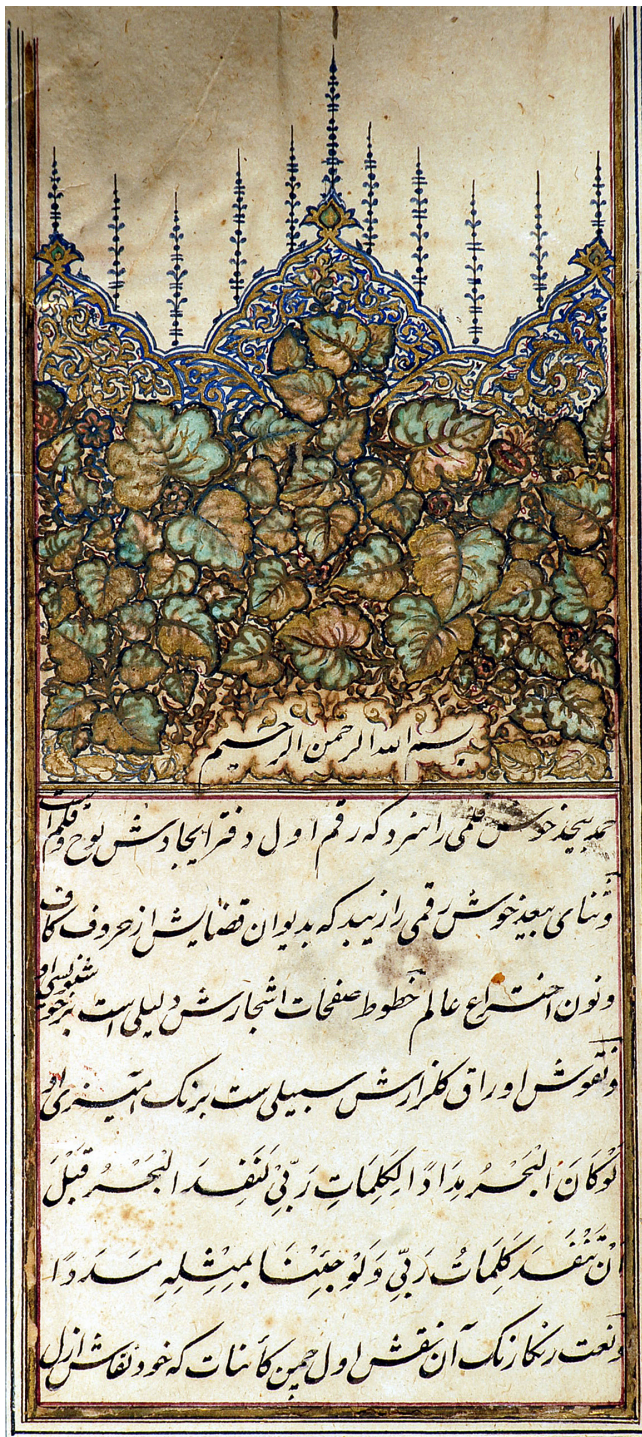 بسم الله الرحمن الرحیم
حمد بیحد خوش قلمی را سزد که رقم اول دفتر ایجادش لوح و قلم است
و ثنای بیعد خوش رقمی را زیبد که بدیوان قضایش از حروف کاف
و نون اختراع عالم خطوط صفحات اشجارش دلیلی است بر خوشنویسی او
و نقوش اوراق گلزارش سبیلی ست برنک آمیزی او
لَوْ كَانَ الْبَحْرُ مِدَادًا لِكَلِمَاتِ رَبِّي لَنَفِدَ الْبَحْرُ قَبْلَ
اَنْ تَنْفَدَ كَلِمَاتُ رَبِّي وَلَوْ جِئْنَا بِمِثْلِهِ مَدَدًا
و نعت رنکارنک آن نقش اول چمن کائنات که خود نقاش ازل